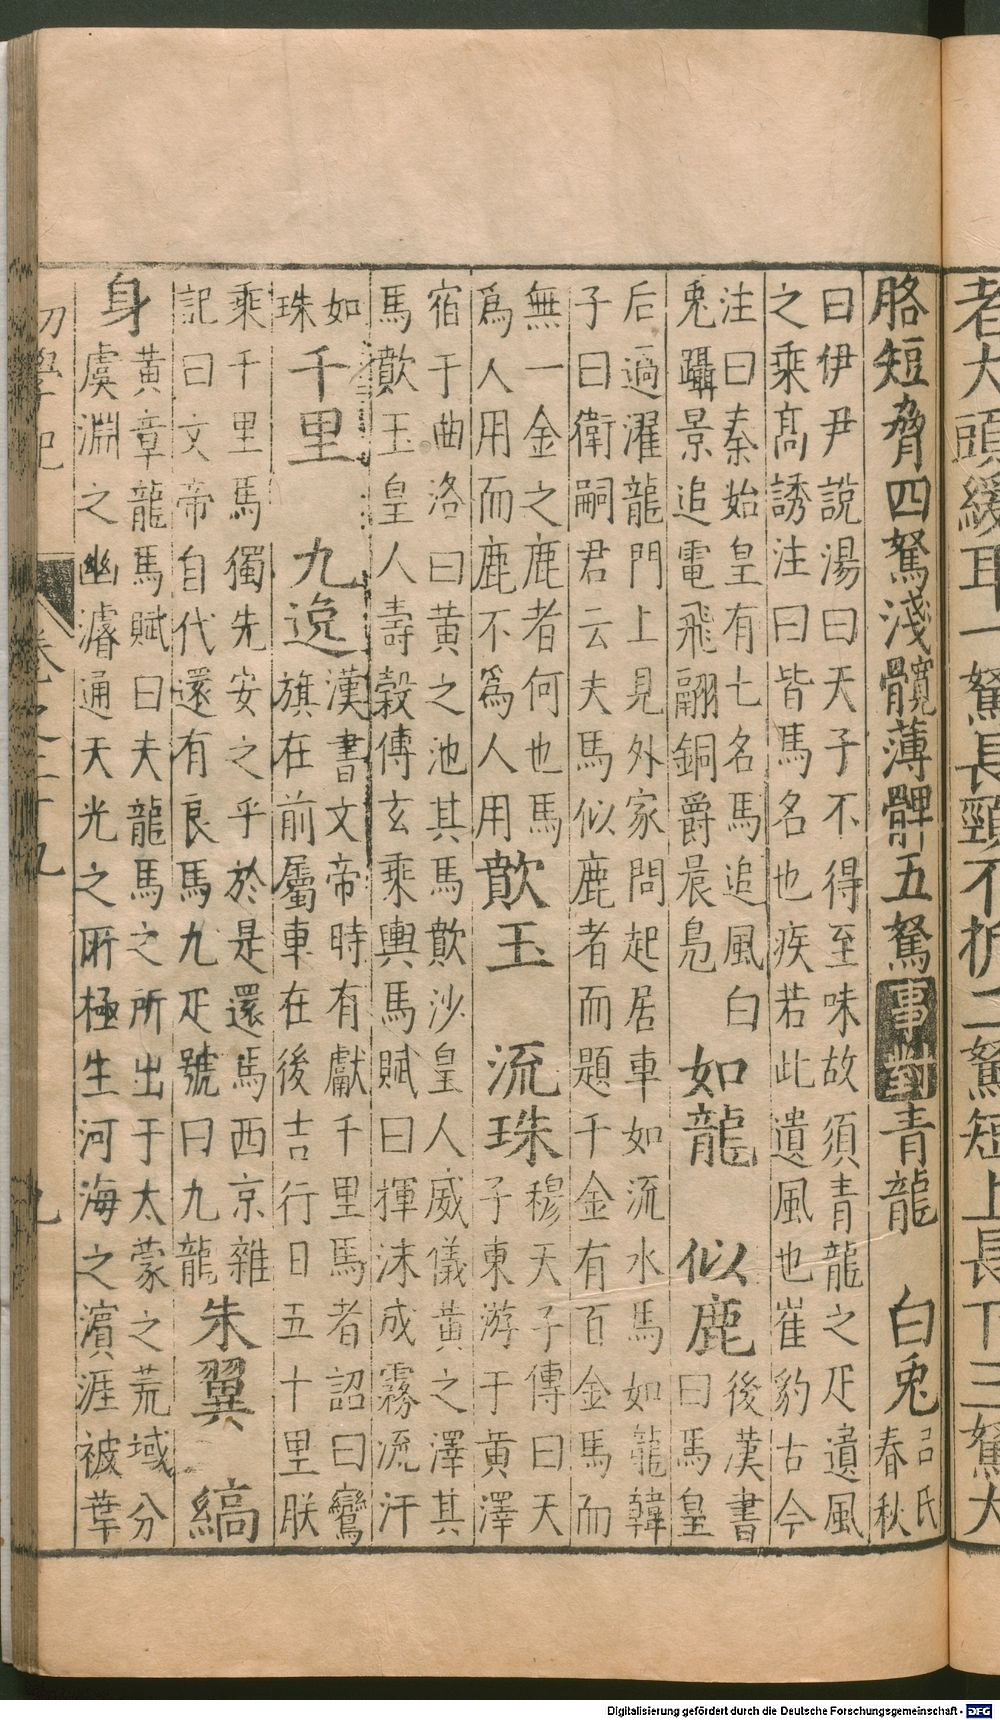 者大頭緩耳一駑長頸不折二駑短上長下三駑大
胳短脅四駑淺髖薄髀五駑事對青龍 白兎呂氏
春秋
曰伊尹說湯曰天子不得至味故須青龍之疋遺風
之乘髙誘注曰皆馬名也疾若此遺風也崔豹古今
注曰秦始皇有七名馬追風白
兎躡景追電飛翮銅爵晨鳬
如龍 似鹿後漢書
曰馬皇
后過濯龍門上見外家問起居車如流水馬如龍韓
子曰衛嗣君云夫馬似鹿者而題千金有百金馬而
無一金之鹿者何也馬
爲人用而鹿不爲人用
歕玉 流珠穆天子傳曰天
子東游于黄澤
宿于曲洛曰黄之池其馬歕沙皇人威儀黄之澤其
馬歕玉皇人壽穀傅玄乘輿馬賦曰揮沬成霧流汗
如
珠
千里 九逸漢書文帝時有獻千里馬者詔曰鸞
旗在前屬車在後吉行日五十里朕
乘千里馬獨先安之乎於是還馬西京雜
記曰文帝自代還有良馬九疋號曰九龍
朱翼 縞
身黄章龍馬賦曰夫龍馬之所出于太蒙之荒域分
虞淵之幽濬通天光之所極生河海之濱涯被葉
初學記 卷之二十九 九
Digitalisierung gefördert durch die Deutsche Forschungsgemeinschaft - DFG